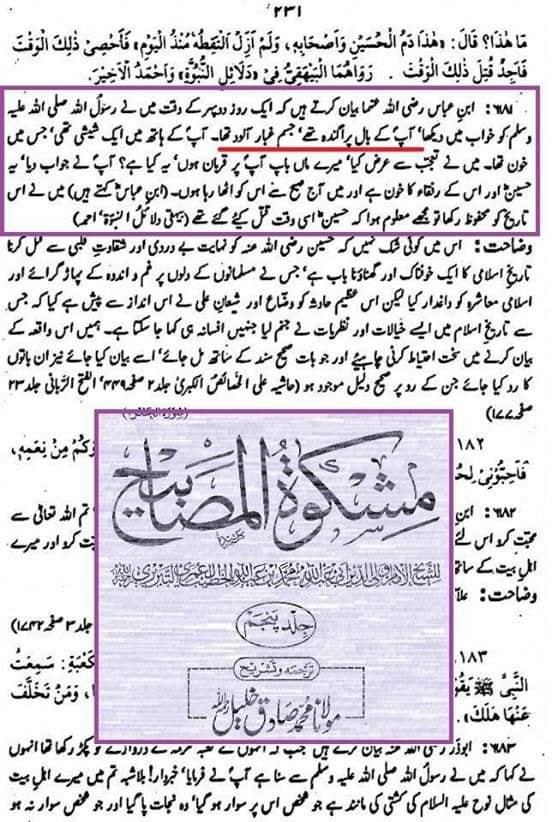 ٢٣١
مَا هٰذَا؟ قَالَ: «هٰذَا دَمُ الْحُسَيْنِ وَاَصْحَابِهِ، وَلَمْ اَزَلْ اَلْتَقِطُهُ مُنْذُ الْيَوْمِ» فَاُحْصِىَ ذٰلِكَ الْوَقْتَ
فَاَجِدُ قُتِلَ ذٰلِكَ الْوَقْتَ . رَوَاهُمَا الْبَيْهَقِيُّ فِيْ «دَلَائِلِ النُّبُوَّةِ» وَاَحْمَدُ الْاَخِيْرَ.
٦١٨١: ابنِ عباس رضی اللہ عنما بیان کرتے ہیں کہ ایک روز دوپہر کے وقت میں نے رسولُ اللہ صلی اللہ علیہ
وسلم کو خواب میں دیکھا' آپؐ کے بال پراگندہ تھے' جسم غبار آلود تھا۔ آپؐ کے ہاتھ میں ایک شیشی تھی' جس میں
خون تھا۔ میں نے تعجب سے عرض کیا' میرے ماں باپ آپؐ پر قربان ہوں' یہ کیا ہے؟ آپؐ نے جواب دیا' یہ
حسینؓ اور اس کے رفقاء کا خون ہے اور میں آج صبح سے اس کو اٹھا رہا ہوں۔ (ابنِ عباسؓ کہتے ہیں) میں نے اس
تاریخ کو محفوظ رکھا تو مجھے معلوم ہوا کہ حسینؓ اسی وقت قتل کیئے گئے تھے (بیہقی دلائلُ النبوّۃ' احمد)
وضاحت: اس میں کوئی شک نہیں کہ حسین رضی اللہ عنہ کو نہایت بے دردی اور شقاوتِ قلبی سے قتل کرنا
تاریخِ اسلامی کا ایک خوفناک اور گھناؤنا باب ہے' جس نے مسلمانوں کے دلوں پر غم و اندوہ کے پہاڑ گرائے اور
اسلامی معاشرہ کو داغدار کیا لیکن اس عظیم حادثہ کو وضّاع اور شیعانِ علی نے اس انداز سے پیش ہے کیا کہ جس
سے تاریخِ اسلام میں ایسے خیالات اور نظریات نے جنم لیا جنہیں افسانہ ہی کہا جا سکتا ہے۔ ہمیں اس واقعہ کے
بیان کرنے میں سخت احتیاط کرنی چاہیئے اور جو بات صحیح سند کے ساتھ مل جائے' اسے بیان کیا جائے نیز ان باتوں
کا رد کیا جائے جن کے رد پر صحیح دلیل موجود ہو (حاشیہ علی الخصائص الکبریٰ جلد۲ صفحہ۴۴۹' الفتح الرّبانی جلد۲۳
صفحہ۱۷۷)
١٨٢
وْكُمْ مِنْ نِعَمِهِ،
فَاَحِبُّوْنِيْ لِحُ
٦١٨٢: ابنِ
تم اللہ تعالیٰ سے
محبت کرو اس لئے
ت کرو اور میرے
اہلِ بیت کے ساتھ
وضاحت: علا
جلد۳ صفحہ۱۷۴۲)
مشكوة المصابيح
جِلد پَنجم
ترجمہ و تشریح
مولانا محمد صادق خلیل رحمہ اللہ
١٨٣
كَعْبَةِ: سَمِعْتُ
النَّبِيَّ ﷺ يَقُوْ
وَمَنْ تَخَلَّفَ
عَنْهَا هَلَكَ»
٦١٨٣: ابوذر رضی اللہ عنہ بیان کرتے ہیں جب کہ انہوں نے کعبہ مکرمہ کے دروازے کو پکڑ رکھا تھا انہوں
نے کہا کہ میں نے رسول اللہ صلی اللہ علیہ وسلم سے سنا ہے آپؐ نے فرمایا' خبردار! بلاشبہ تم میں میرے اہلِ بیت
کی مثال نوح علیہ السلام کی کشتی کی مانند ہے جو شخص اس پر سوار ہو گیا' وہ نجات پا گیا اور جو شخص سوار نہ ہو